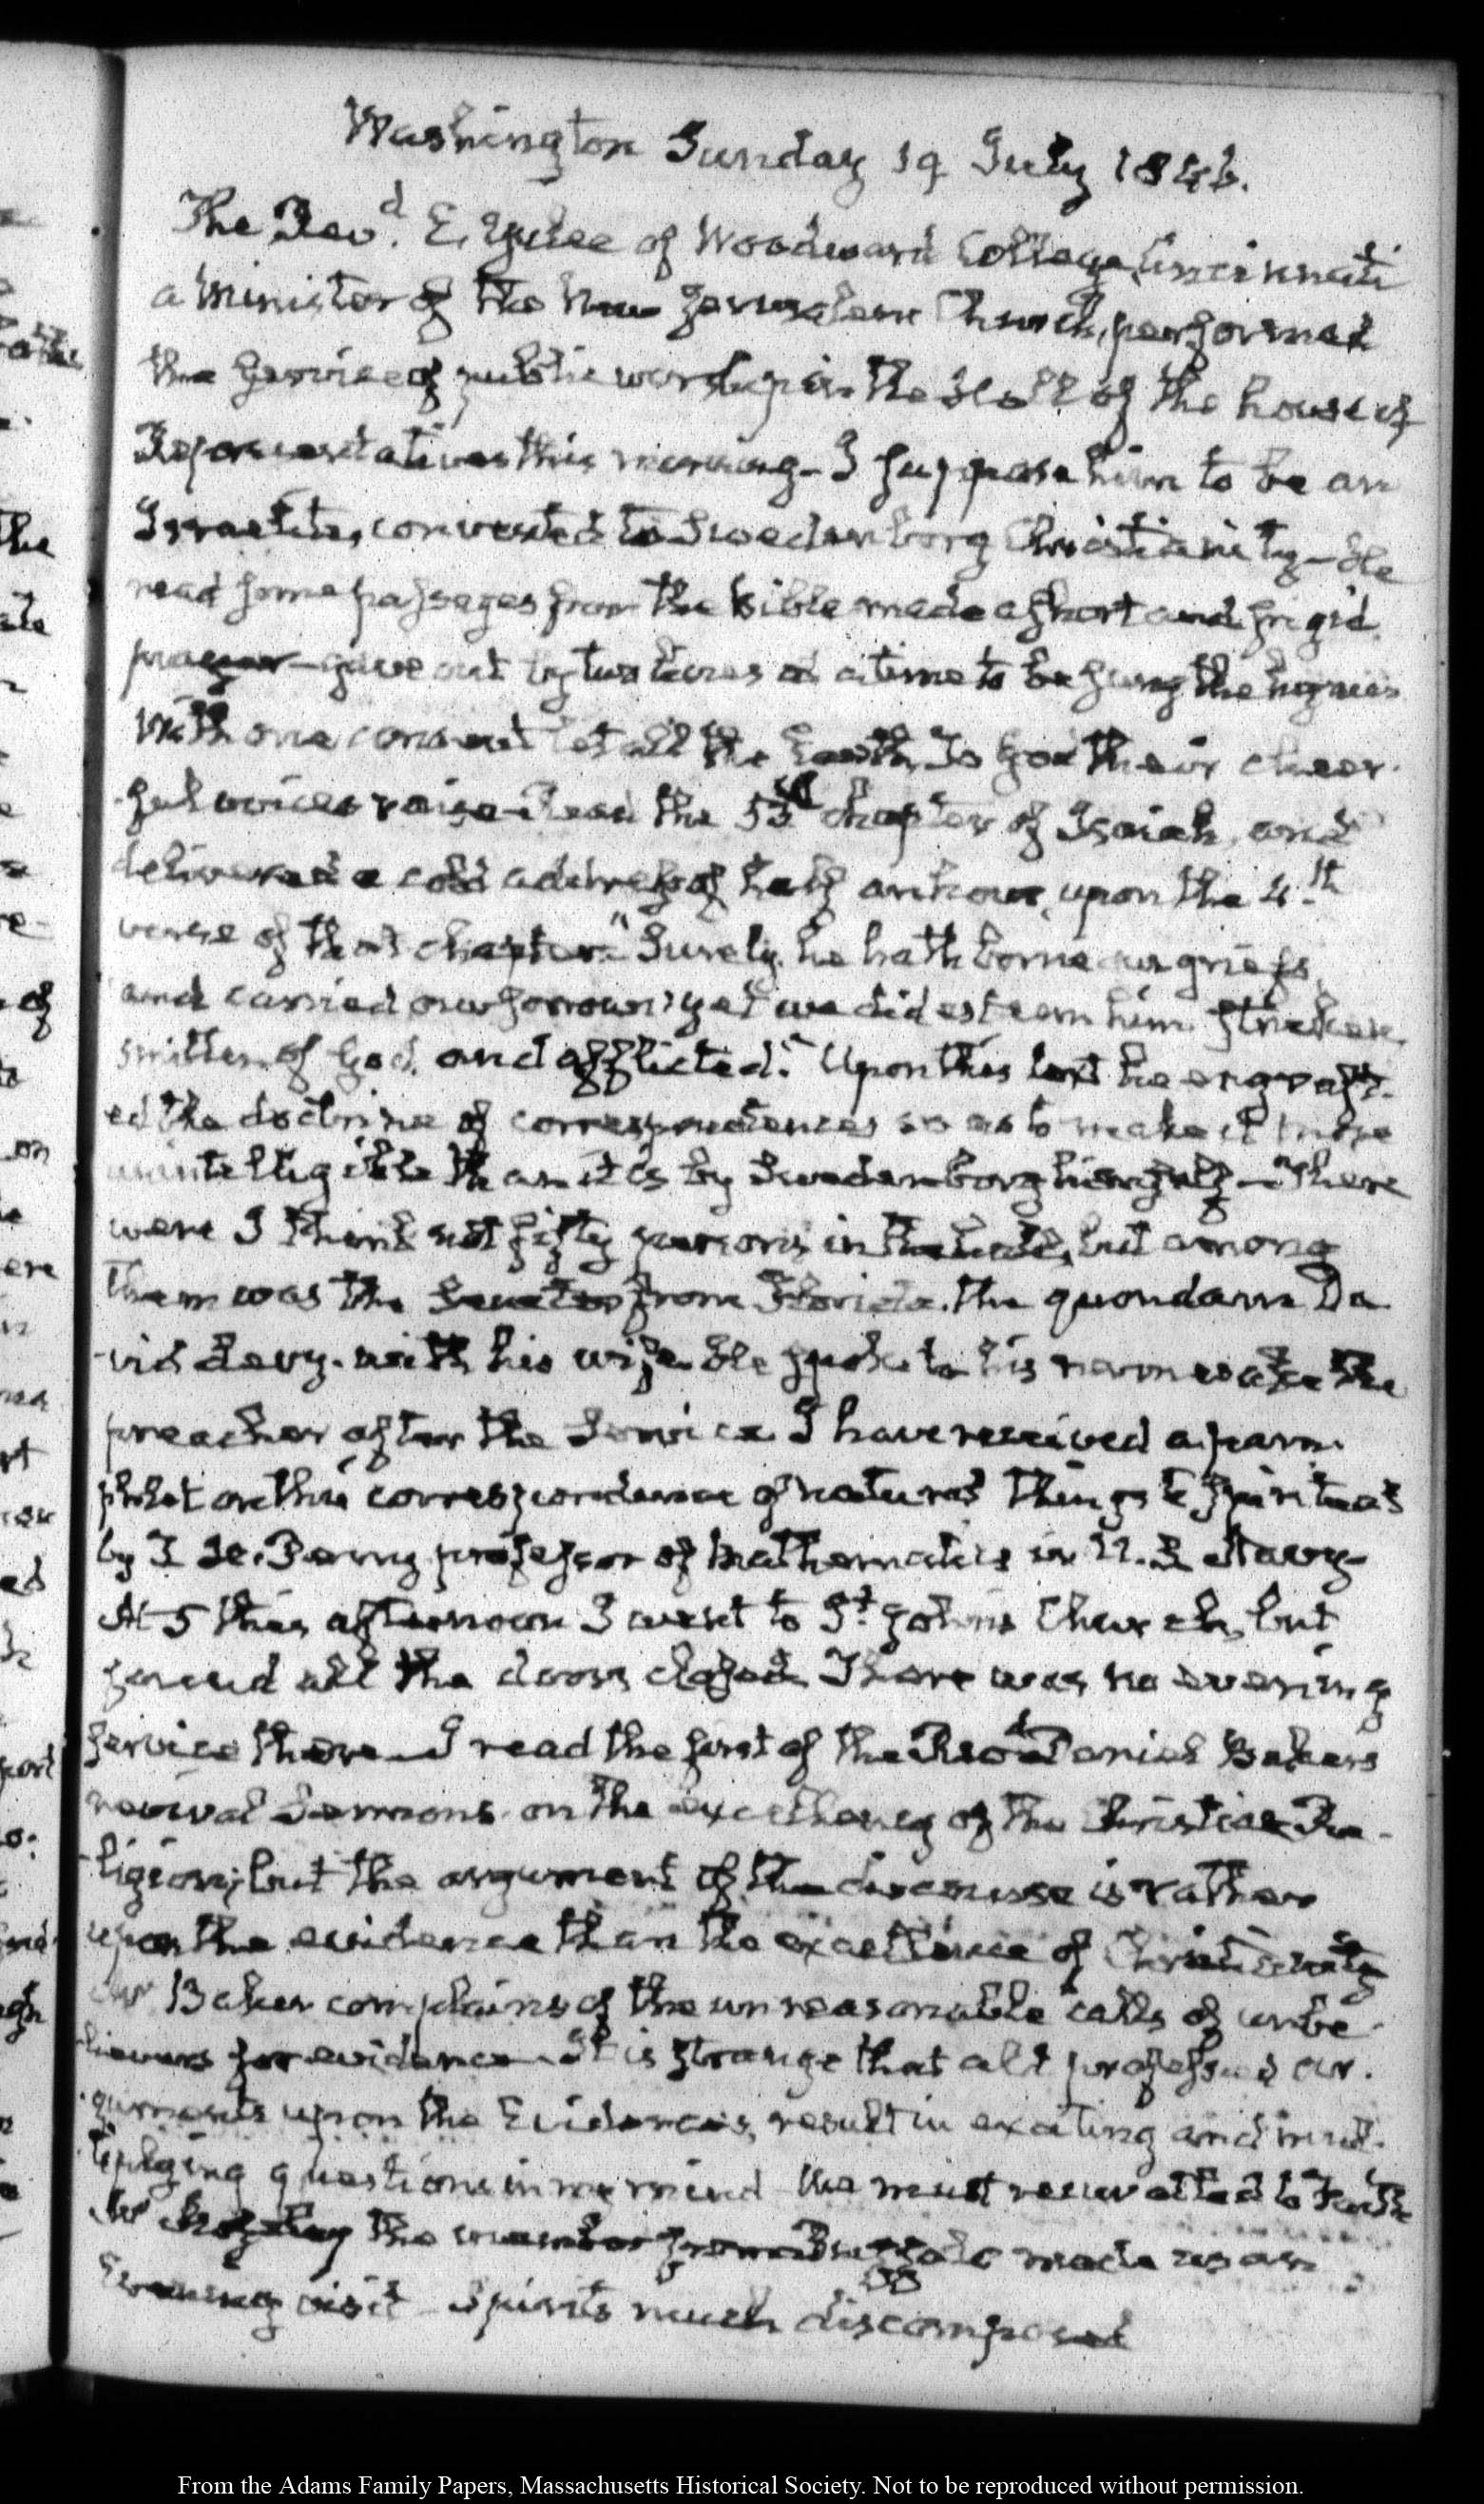 Washington Sunday 19 July 1846.
The Revd. E. Yulee of Woodward College, Cincinnati
a Minister of the New Jerusalem Church, performed
the service of public worship in the Hall of the house of
Representatives this morning - I suppose him to be an
Israelite, converted to Swedenborg Christianity - He
read some passages from the bible made a short and frigid
prayer - gave out by two lines at a time to be sung the hymns
With one consent let all the Earth, To God their cheer-
ful voices raise - Read the 53d chapter of Isaiah, and
delivered a cold address of half an hour, upon the 4.th
verse of that chapter. "Surely he hath borne our griefs,
and carried our sorrows; yet we did esteem him stricken,
smitten of God, and afflicted." Upon this text he engraft-
ed the doctrine of correspondences so as to make it more
unintelligible than it is by Swedenborg himself - There
were I think not fifty persons in the hall, but among
them was the Senator from Florida. the quondam Da
-vid Levy. with his wife. He spoke to his namesake the
preacher after the Service I have received a pam-
phlet on this correspondence of natural things to spiritual
by professor of Mathematics in U.S. Navy
At 5 this afternoon I went to St. John's Church, but
found all the doors closed. There was no evening
service there - I read the first of the Revd Daniel Bakers
revival Sermons. on the excellency of the Christian Re-
-ligion; but the argument of the discourse is rather
upon the evidence than the excellence of Christianity
Mr Baker complains of the unreasonable calls of unbe-
lievers for evidence. It is strange that all professed ar-
-guments upon the Evidences, result in exciting and mul-
tiplying questions in my mind the must
the member from made us an
evening visit - Spirits much discomposed
From the Adams Family Papers, Massachusetts Historical Society. Not to be reproduced without permission.